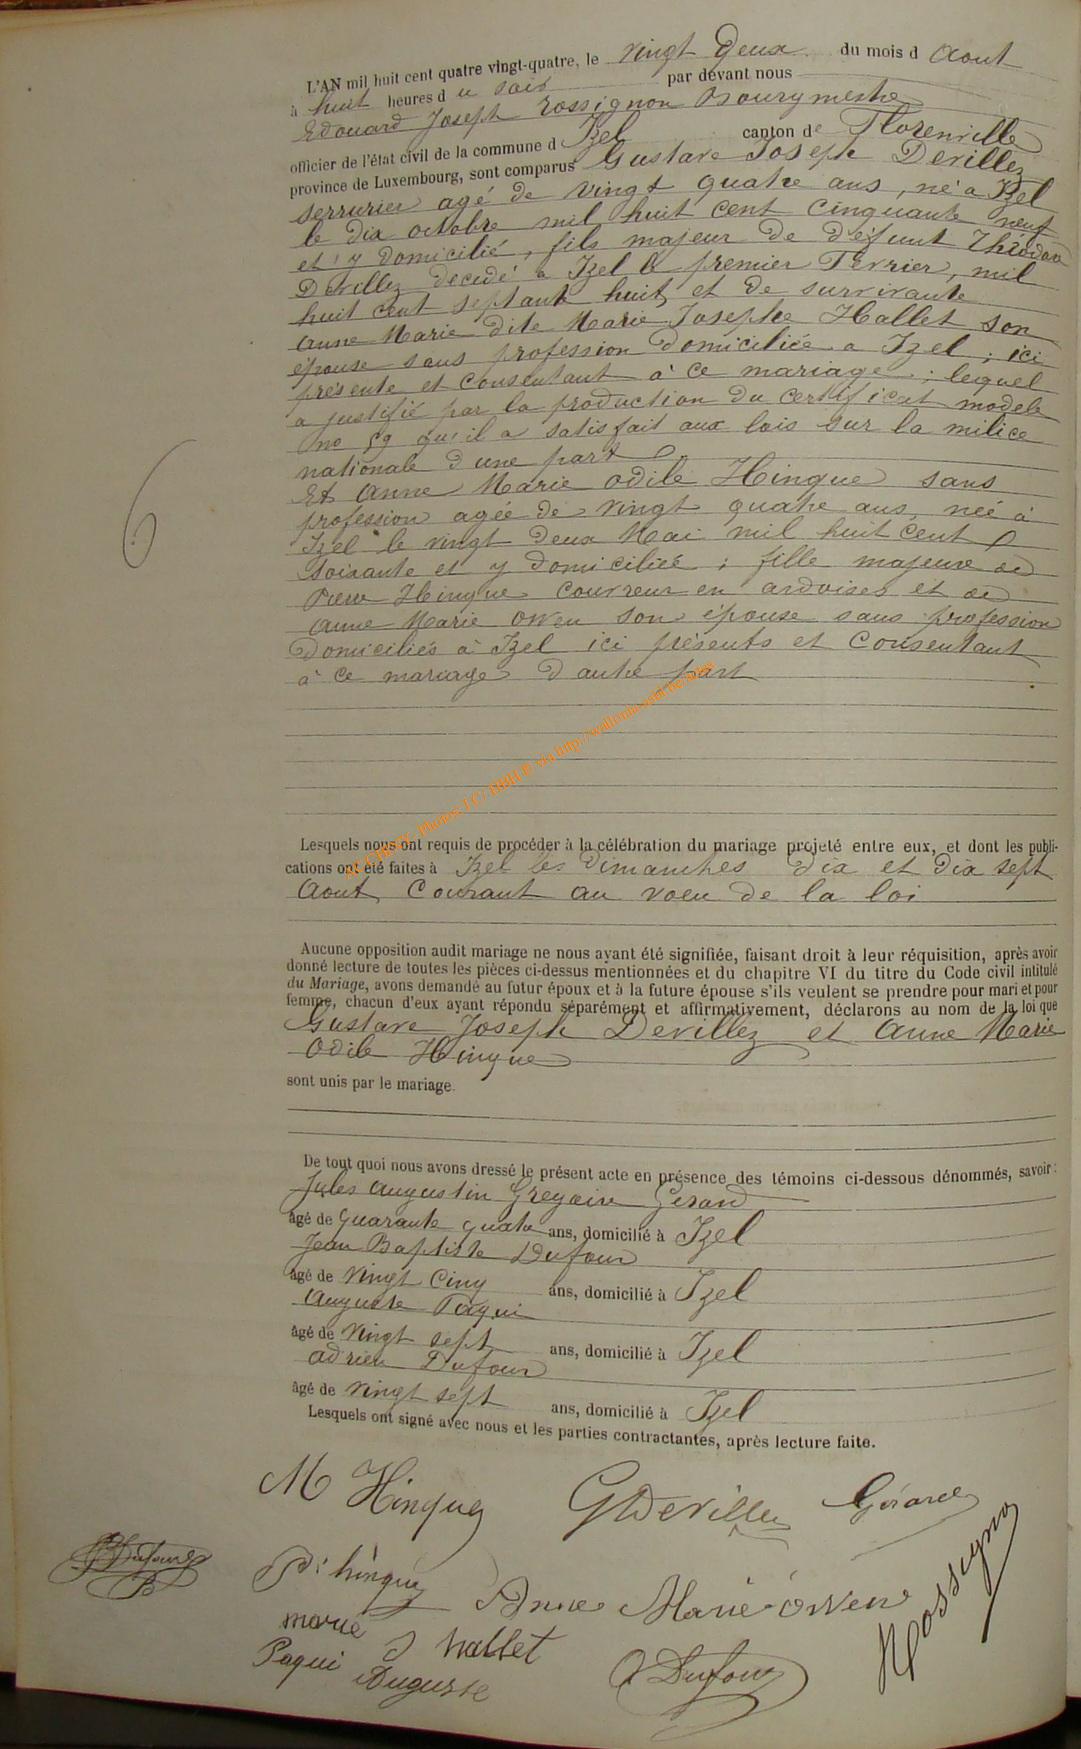 L'AN mil huit cent quatre vingt-quatre, le vingt deux du mois d Aout
à huit heures d u soir par devant nous
Edouard Joseph Rossignon Bourgmestre
officier de l'état civil de la commune d Izel canton de Florenville
province de Luxembourg, sont comparus Gustave Joseph Devillez
serrurier agé de vingt quatre ans, né a Izel
le dix octobre mil huit cent cinquante neuf
et y domicilié, fils majeur de défunt Théodore
Devillez décédé a Izel le premier Fevrier, mil
huit cent septante huit, et de survivante
Anne Marie dite Marie Josephe Hallet son
épouse sans profession domiciliée a Izel ; ici
présente et consentant à ce mariage ; lequel
a justifié par la production du certificat modele
no 59 qu'il a satisfait aux lois sur la milice
nationale d une part
Et Anne Marie Odile Hinque sans
profession agée de vingt quatre ans, née à
Izel le vingt deux Mai mil huit cent
soixante et y domiciliée ; fille majeure de
Pierre Hinque couvreur en ardoises et de
Anne Marie Owen son épouse sans profession
domiciliés à Izel ici présents et consentant
à ce mariage d autre part
Lesquels nous ont requis de procéder à la célébration du mariage projeté entre eux, et dont les publi-
cations ont été faites à Izel les Dimanches dix et dix sept
Aout courant au voeu de la loi
Aucune opposition audit mariage ne nous ayant été signifiée, faisant droit à leur réquisition, après avoir
donné lecture de toutes les pièces ci-dessus mentionnées et du chapitre VI du titre du Code civil intitulé
du Mariage, avons demandé au futur époux et à la future épouse s'ils veulent se prendre pour mari et pour
femme, chacun d'eux ayant répondu séparément et affirmativement, déclarons au nom de la loi que
Gustave Joseph Devillez et Anne Marie
Odile Hinque
sont unis par le mariage.
De tout quoi nous avons dressé le présent acte en présence des témoins ci-dessous dénommés, savoir :
Jules Augustin Gregoire Gerard
âgé de Quarante quatre ans, domicilié à Izel
Jean Baptiste Dufour
âgé de vingt cinq ans, domicilié à Izel
Auguste Paqui
âgé de vingt sept ans, domicilié à Izel
Adrien Dufour
âgé de vingt sept ans, domicilié à Izel
Lesquels ont signé avec nous et les parties contractantes, après lecture faite.
M Hinque GDevillez Gérard
JBDufour
P. hinque Anne Marie owen Rossignon
marie J hallet
Paqui Auguste A Dufour